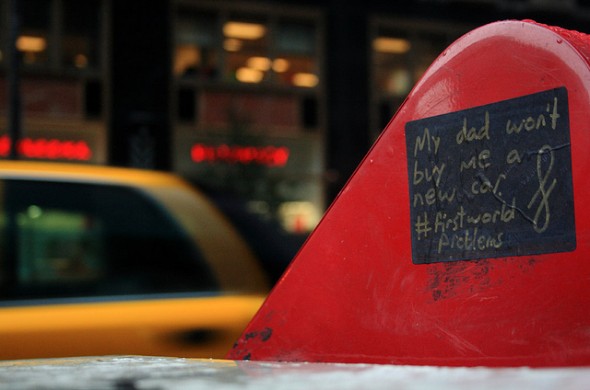 My dad won't
buy me a
new car
#firstworld
problems